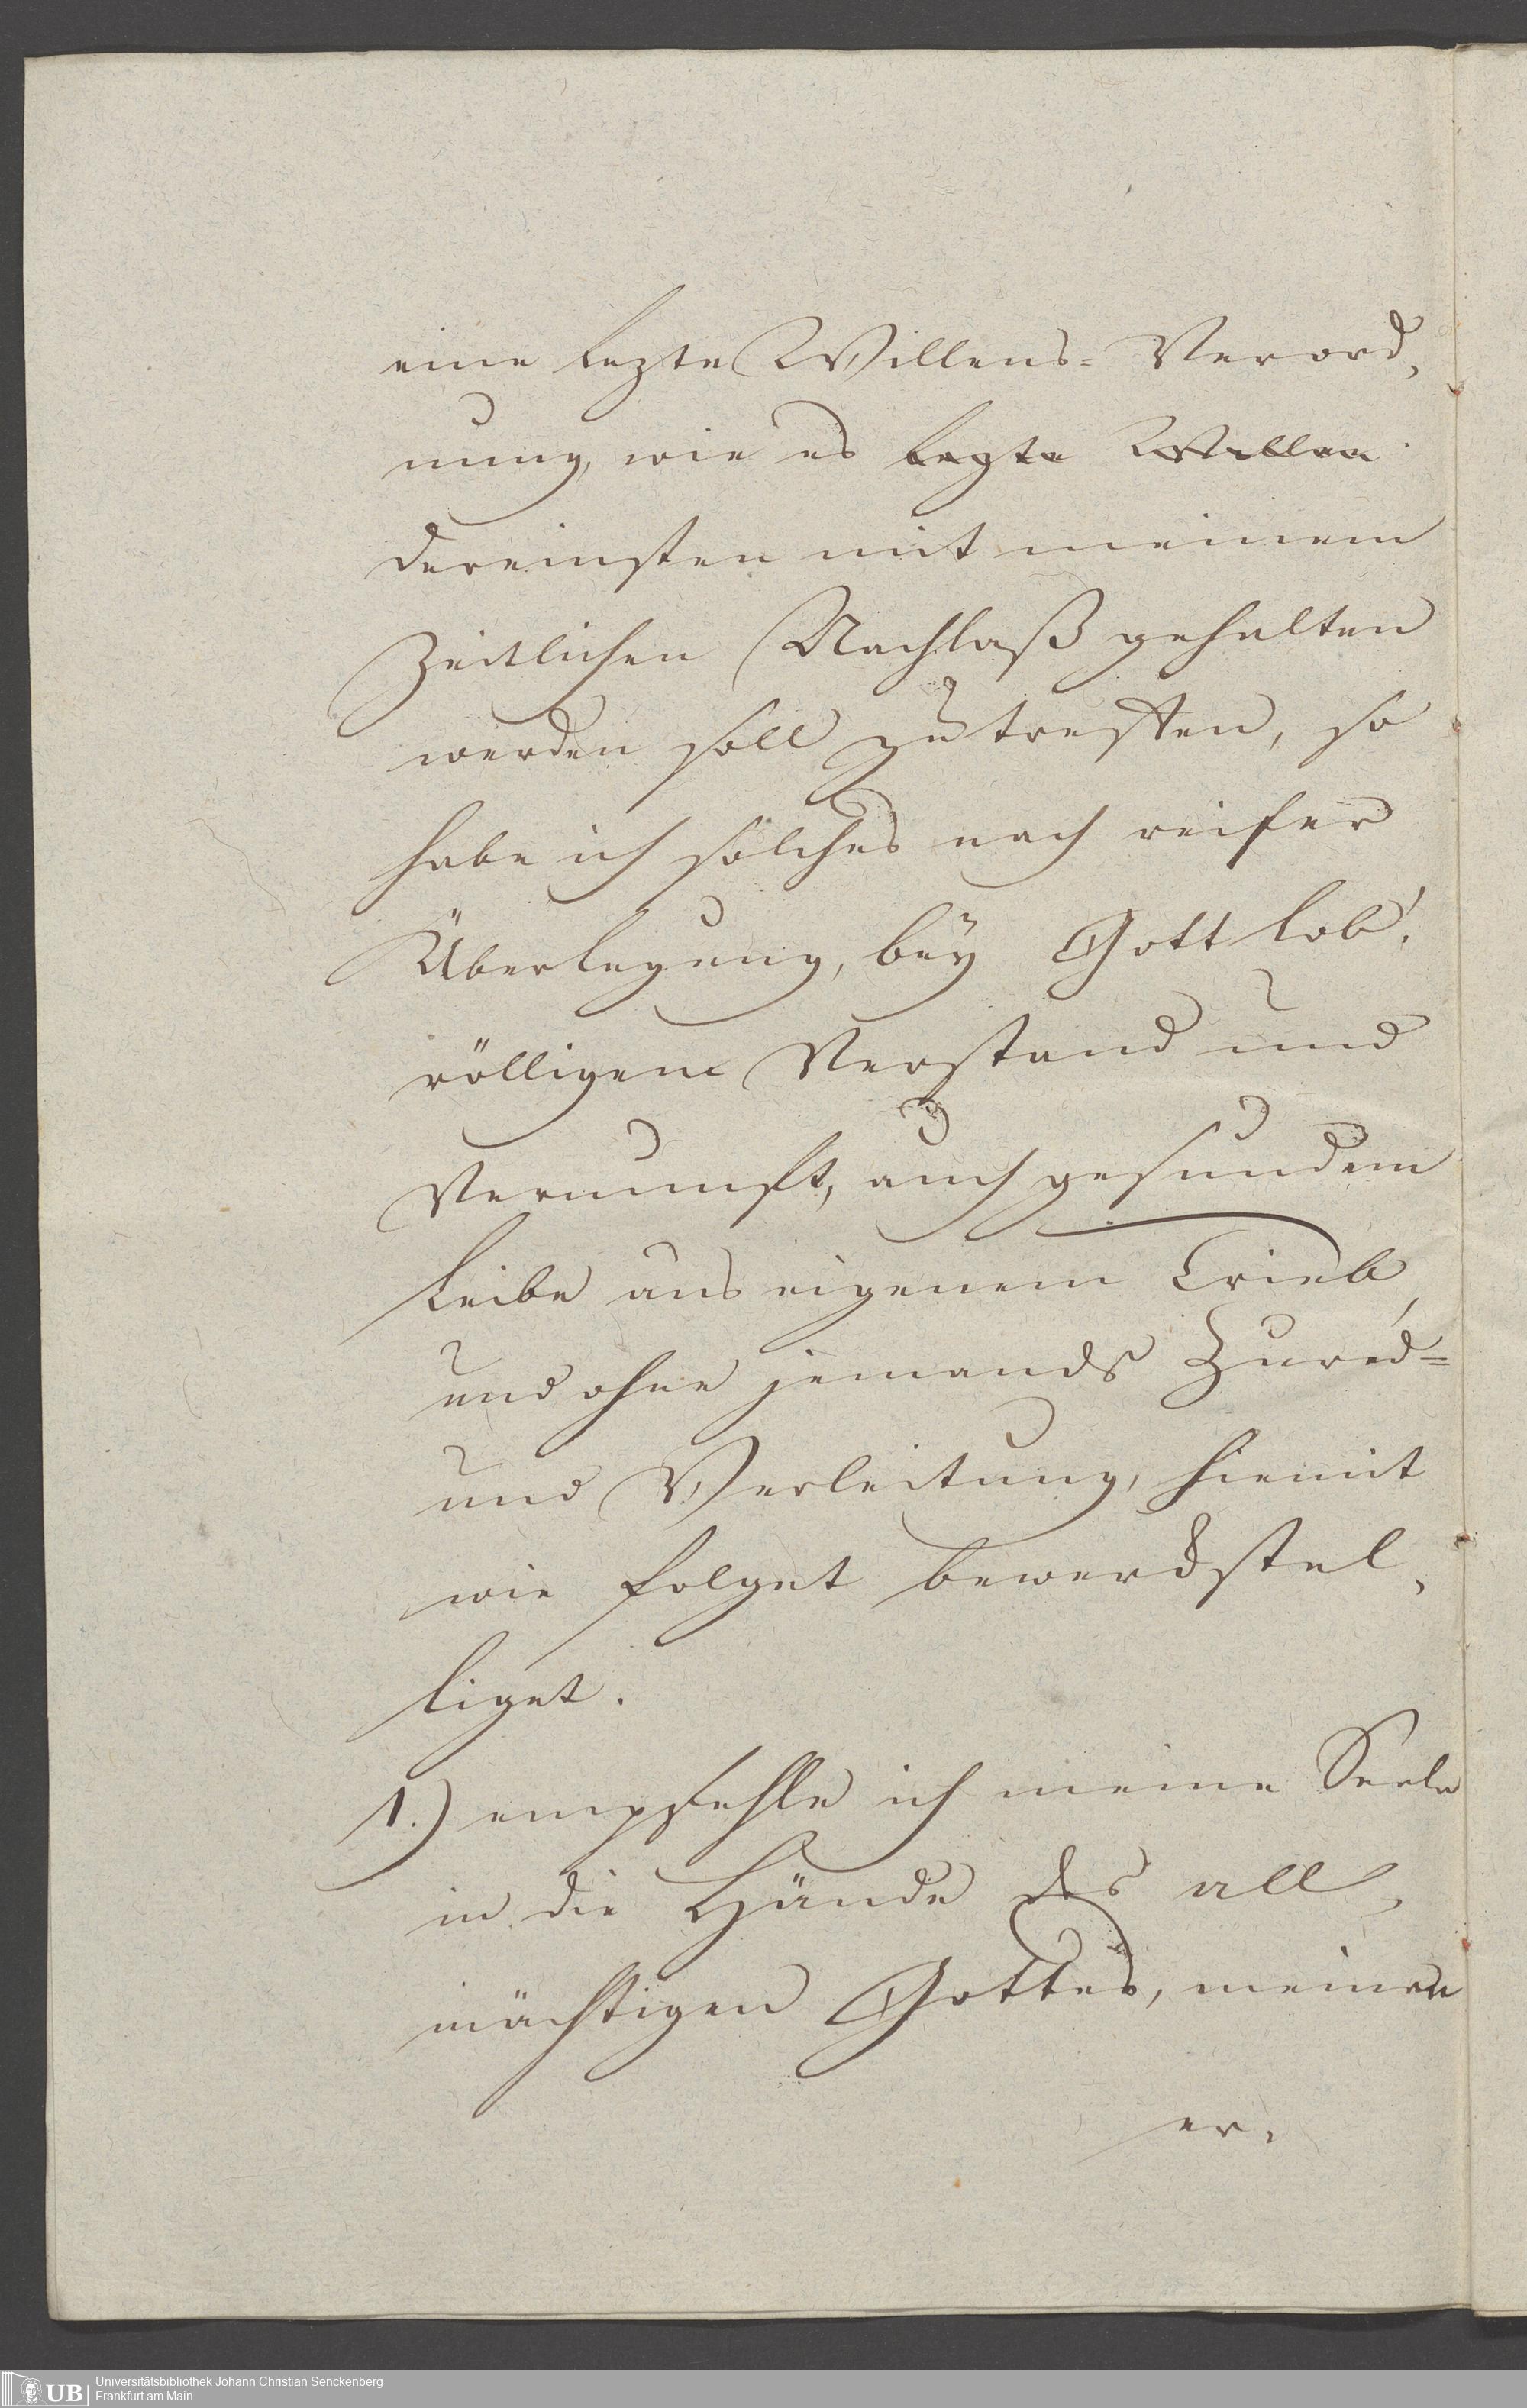 eine lezte Willens= Verord,
nung, wie es lezte Willen
dereinsten mit meinem
Zeitlichen Nachlaß gehalten
werden soll zu treffen, so
habe ich solches nach reifer
Überlegung, bey Gott lob!
völligem Verstand und
Vernunft, auch gesundem
Leibe aus eigenem Trieb,
und ohne jemands Zured=
und Verleitung, hiemit
wie folget bewerckstel,
liget.
1.) empfehle ich meine Seele
in die Hände des all,
mächtigen Gottes, meinen
er,
UB Universitätsbibliothek Johann Christian Senckenberg
Frankfurt am Main